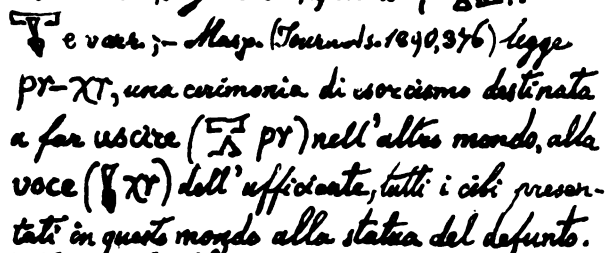 e varr.; – Masp. (Journ. As. 1890, 376) legge
pr-χr, una cerimonia di esorcismo destinata
a far uscire (𓉐𓂻 pr) nell'altro mondo, alla
voce (𓊤 χr) dell'ufficiante, tutti i cibi presen-
tati in questo mondo alla statua del defunto.